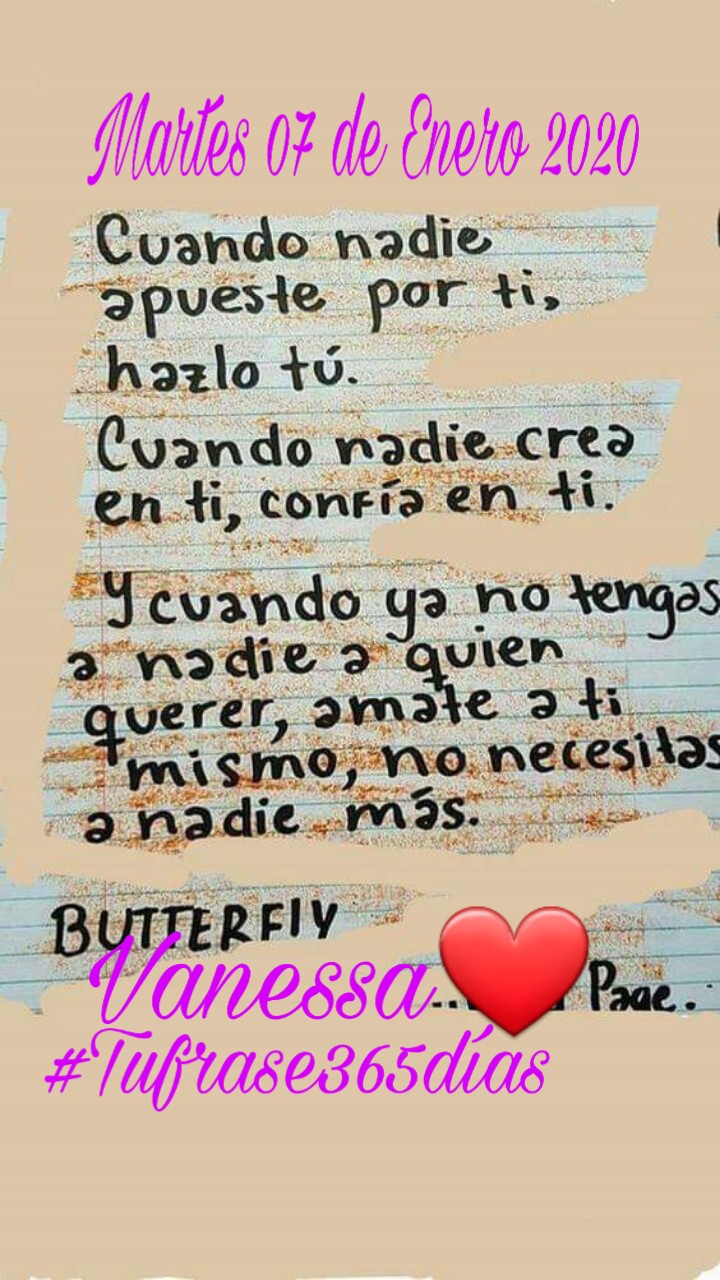 Martes 07 de Enero 2020
Cuando nadie
apueste por ti,
hazlo tú.
Cuando nadie crea
en ti, confía en ti.
Y cuando ya no tengas
a nadie a quien
querer, amate a ti
mismo, no necesitas
a nadie más.
BUTTERFLY
Vanessa... Page.
#Tufrase365días